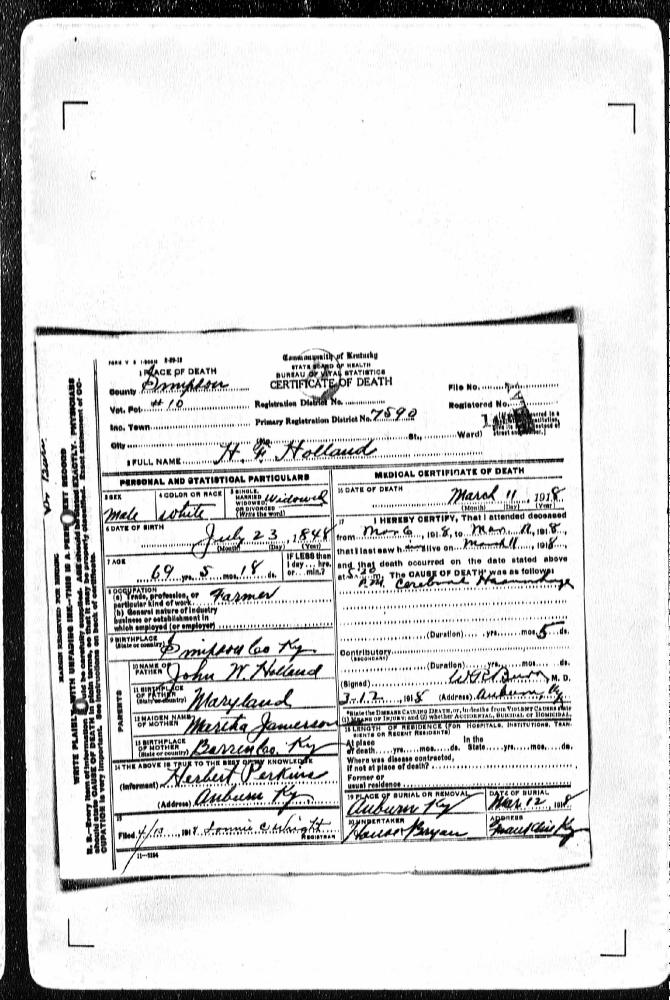 FORM V S 1-500M 8-29-13
Commonwealth of Kentucky
STATE BOARD OF HEALTH
BUREAU OF VITAL STATISTICS
CERTIFICATE OF DEATH
1 PLACE OF DEATH
County Simpson
Vot. Pct. # 10
Inc. Town
City
File No.
Registered No.
Registration District No.
Primary Registration District No. 7590
No. St., Ward)
2 FULL NAME H. F. Holland
PERSONAL AND STATISTICAL PARTICULARS
3 SEX
Male
4 COLOR OR RACE
White
5 SINGLE, MARRIED, WIDOWED, OR DIVORCED (Write the word)
Widowed
6 DATE OF BIRTH
July 23, 1848
(Month) (Day) (Year)
7 AGE
69 yrs. 5 mos. 18 ds.
IF LESS than 1 day... hrs. or... min.?
8 OCCUPATION
(a) Trade, profession, or particular kind of work Farmer
(b) General nature of industry business or establishment in which employed (or employer)
9 BIRTHPLACE (State or country) Simpson Co Ky
PARENTS
10 NAME OF FATHER John W. Holland
11 BIRTHPLACE OF FATHER (State or country) Maryland
12 MAIDEN NAME OF MOTHER Martha Jamerson
13 BIRTHPLACE OF MOTHER (State or country) Barren Co. Ky
14 THE ABOVE IS TRUE TO THE BEST OF MY KNOWLEDGE
(Informant) Herbert Perkins
(Address) Auburn Ky
15
Filed 4/13, 1918 Lonnie C Wright
REGISTRAR
11—1184
MEDICAL CERTIFICATE OF DEATH
16 DATE OF DEATH
March 11, 1918
(Month) (Day) (Year)
17 I HEREBY CERTIFY, That I attended deceased
from Mar 6, 1918, to Mar 11, 1918,
that I last saw h alive on March 11, 1918
and that death occurred on the date stated above
at P.M. The CAUSE OF DEATH* was as follows:
Cerebral Haemorrhage
(Duration) yrs. mos. 5 ds.
Contributory
(SECONDARY)
(Duration) yrs. mos. ds.
(Signed) M. D.
3-12, 1918 (Address) Auburn Ky
*State the DISEASE CAUSING DEATH, or, in deaths from VIOLENT CAUSES state (1) MEANS OF INJURY; and (2) whether ACCIDENTAL, SUICIDAL or HOMICIDAL.
18 LENGTH OF RESIDENCE (FOR HOSPITALS, INSTITUTIONS, TRANSIENTS OR RECENT RESIDENTS)
At place of death yrs. mos. ds. In the State yrs. mos. ds.
Where was disease contracted, if not at place of death?
Former or usual residence
19 PLACE OF BURIAL OR REMOVAL
Auburn Ky
DATE OF BURIAL
Mar 12 1918
20 UNDERTAKER
ADDRESS
Franklin Ky
MARGIN RESERVED FOR BINDING
WRITE PLAINLY WITH UNFADING INK—THIS IS A PERMANENT RECORD